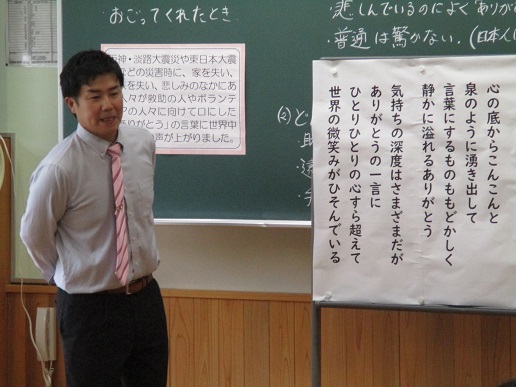 おごってくれたとき
悲しんでいるのによく
普通は驚かない。(日本人
神・淡路大震災や東日本大震
どの災害時に、家を失い、
を失い、悲しみのなかにあ
人々が救助の人やボランテ
アの人々に向けて口にした
ありがとう」の言葉に世界中
の声が上がりました。
心の底からこんこんと
泉のように湧き出して
言葉にするものももどかしく
静かに溢れるありがとう
気持ちの深度はさまざまだが
ありがとうの一言に
ひとりひとりの心すら超えて
世界の微笑みがひそんでいる